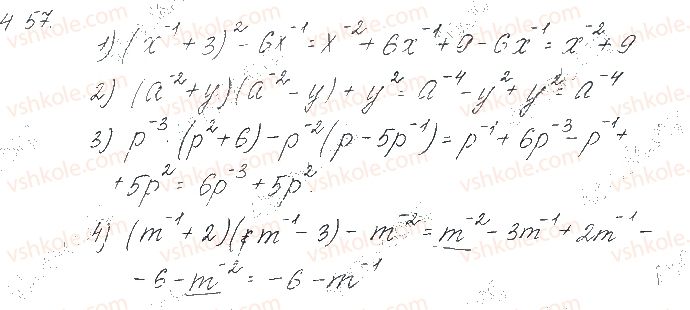 457.
1) (x⁻¹ + 3)² - 6x⁻¹ = x⁻² + 6x⁻¹ + 9 - 6x⁻¹ = x⁻² + 9
2) (a⁻² + y)(a⁻² - y) + y² = a⁻⁴ - y² + y² = a⁻⁴
3) p⁻³ · (p² + 6) - p⁻² (p - 5p⁻¹) = p⁻¹ + 6p⁻³ - p⁻¹ +
+ 5p² = 6p⁻³ + 5p².
4) (m⁻¹ + 2)(m⁻¹ - 3) - m⁻² = m⁻² - 3m⁻¹ + 2m⁻¹ -
- 6 - m⁻² = - 6 - m⁻¹
vshkole.com